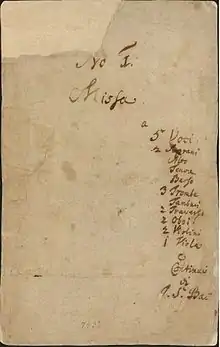 No I.
Missa
a
5 Voci.
2 Soprani
Alto
Tenore
Basso
3 Trombe
Tamburi
2 Traversi
2 Oboi
2 Violini
1 Viola
e
Continuo
di
J. S. Bach